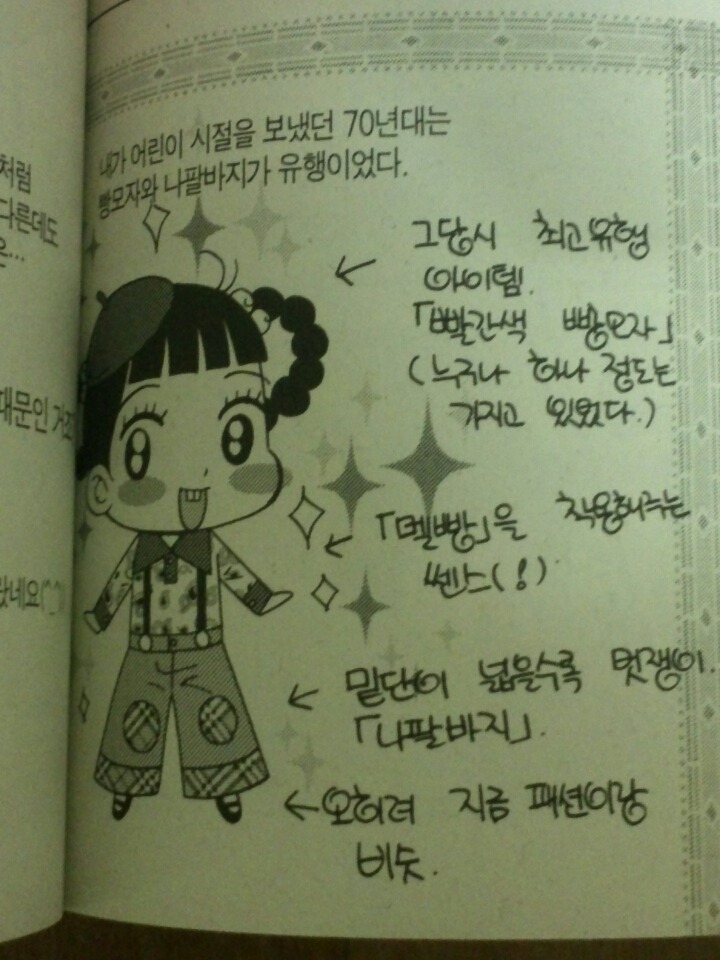 내가 어린이 시절을 보냈던 70년대는
빵모자와 나팔바지가 유행이었다.
그당시 최고유행
아이템.
「빨간색 빵모자」
(누구나 하나 정도는
가지고 있었다.)
「멜빵」을 착용해주는
쎈스(!)
밑단이 넓을수록 멋쟁이.
「나팔바지」.
오히려 지금 패션이랑
비슷.
처럼
다른데도
은…
때문인 거죠
았네요(^_^)